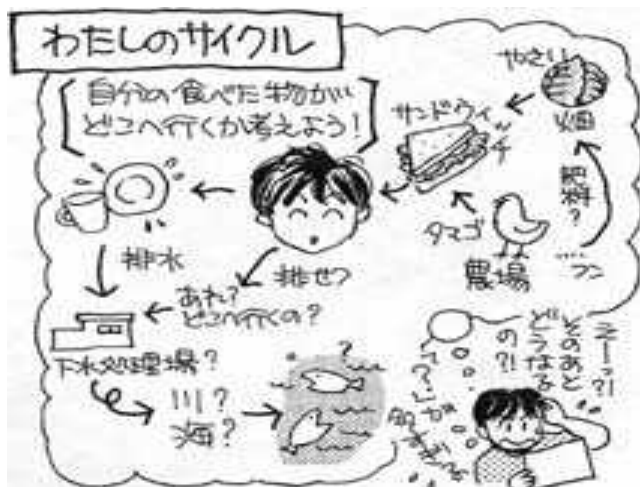 わたしのサイクル
自分の食べた物が
どこへ行くか考えよう!
やさい
畑
サンドウィッチ
肥料?
タマゴ
農場
……フン
排水
排せつ
あれ?
どこへ行くの?
下水処理場?
川?
海?
?
えーっ?!
そのあと
どうなる
の?!